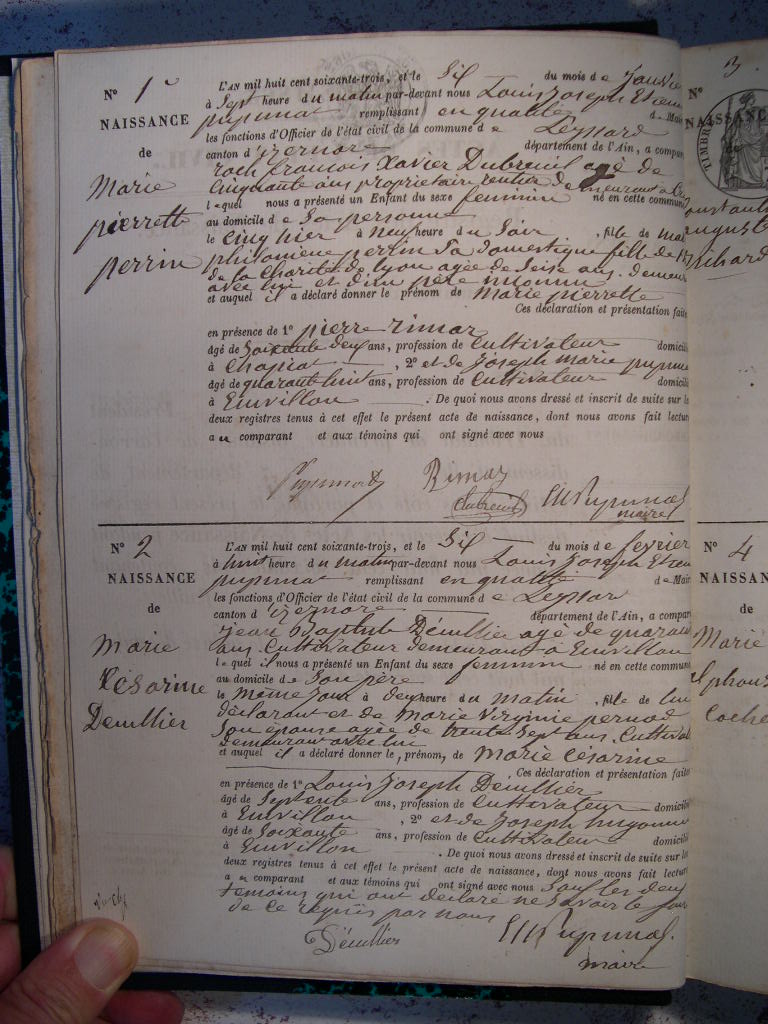 N° 1
NAISSANCE
de
Marie
pierrette
perrin
L'AN mil huit cent soixante-trois, et le Six du mois de Janvie
à Sept heure du matin par-devant nous Louis Joseph Etienn
pupunat remplissant en qualité de Mair
les fonctions d'Officier de l'état civil de la commune de Leyssard
canton d'izernore département de l'Ain, a compar
roch francois Xavier Dubreuil agé de
Cinquante ans propriétaire rentier demeurant à
lequel nous a présenté un Enfant du sexe feminin né en cette commune
au domicile de Sa personne
le Cinq hier à neuf heure du Soir, fille de
philomène perrin Sa domestique fille de
de la Charité de lyon agée de Seise ans demeur
avec lui et d'un père inconnu
et auquel il a déclaré donner le prénom de Marie pierrette
Ces déclaration et présentation faite
en présence de 1° pierre rimoz
âgé de Soixante deux ans, profession de Cultivateur domicili
à Chapiat, 2° et de Joseph Marie pupuna
âgé de quarante huit ans, profession de Cultivateur domicili
à Euvillon. De quoi nous avons dressé et inscrit de suite sur le
deux registres tenus à cet effet le présent acte de naissance, dont nous avons fait lectur
au comparant et aux témoins qui ont signé avec nous
Pupunat Rimoz
Dubreuil Pupunat
maire
N° 2
NAISSANCE
de
Marie
Césarine
Décullier
L'AN mil huit cent soixante-trois, et le Six du mois de fevrier
à huit heure du matin par-devant nous Louis Joseph Etien
pupunat remplissant en qualité de Mair
les fonctions d'Officier de l'état civil de la commune de Leyssar
canton d'izernore département de l'Ain, a compar
Jean Baptiste Décullier agé de quaran
ans Cultivateur demeurant à Euvillon
lequel nous a présenté un Enfant du sexe feminin né en cette commune
au domicile de Son père
le Même jour à deux heure du matin, fille de lui
déclarant et de Marie Virginie pernod
Son épouse agée de trente Sept ans Cultivat
demeurant avec lui
et auquel il a déclaré donner le prénom, de Marie Césarine
Ces déclaration et présentation faites
en présence de 1° Louis Joseph Décullier
âgé de Septente ans, profession de Cultivateur domicilié
à Euvillon, 2° et de Joseph hugonne
âgé de Soixante ans, profession de Cultivateur domicilié
à Euvillon. De quoi nous avons dressé et inscrit de suite sur les
deux registres tenus à cet effet le présent acte de naissance, dont nous avons fait lecture
au comparant et aux témoins qui ont signé avec nous Sauf les deux
temoins qui ont déclaré ne Savoir le faire
de ce requis par nous
Décullier Pupunat
maire
3
N°
NAISSANCE
TIMBRE
Constant
auguste
N° 4
NAISSAN
de
Marie
alphons
Coche